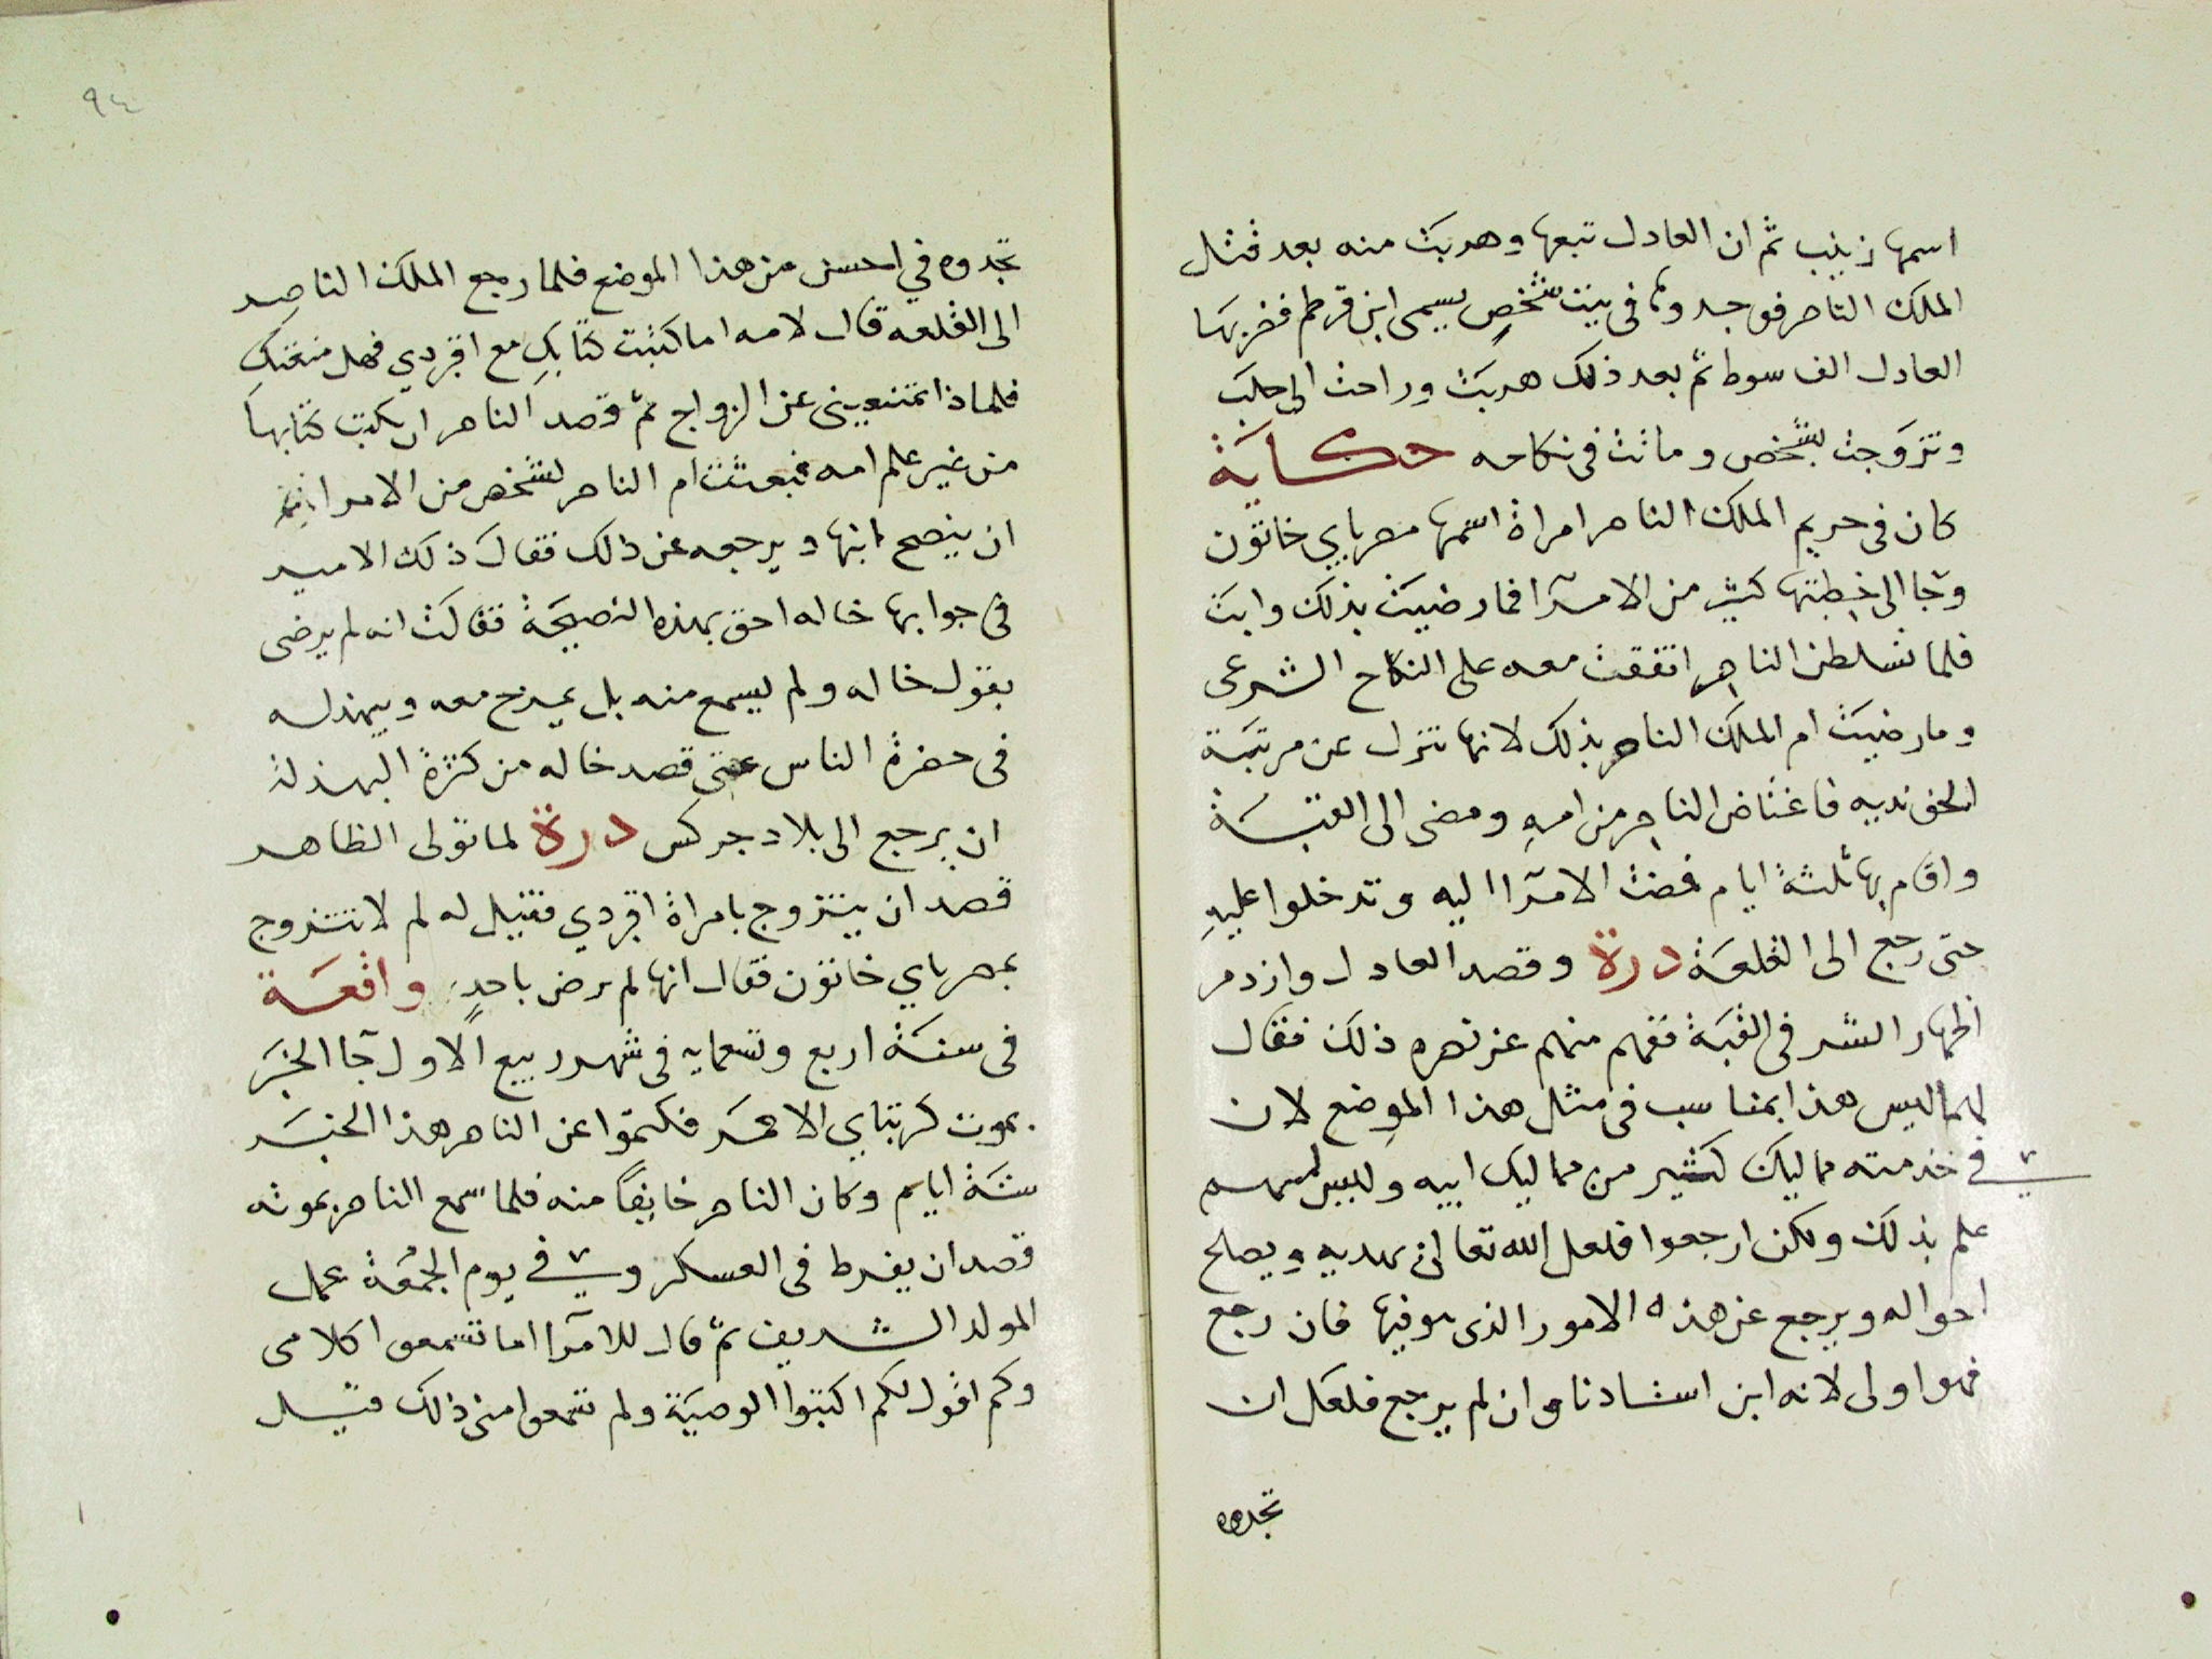 اسمها زينب ثم ان العادل تبعها وهربت منه بعد قتل
الملك الناصر فوجدوها فى بيت شخصٍ يسمى ابن قرطم فضربها
العادل الف سوط ثم بعد ذلك هربت وراحت الى حلب
وتزوجت بشخص وماتت فى نكاحه حكاية
كان فى حريم الملك الناصر امراة اسمها مصرباي خاتون
وجا الى خطبتها كثير من الامرآ فما رضيت بذلك وابت
فلما تسلطن الناصر اتفقت معه على النكاح الشرعى
وما رضيت ام الملك الناصر بذلك لانها تنزل عن مرتبة
الخوندية فاغتاض الناصر من امهِ ومضى الى القبة
واقام بها ثلثة ايام فمضت الامرآ اليه وتدخلوا عليهِ
حتى رجع الى القلعة درة وقصد العادل وازدمر
اظهار الشر فى القبة ففهم منهم عزتهره ذلك فقال
لهما ليس هذا بمناسب فى مثل هذا الموضع لان
فى خدمته مماليك كثير من مماليك ابيه وليس لهم
علم بذلك ولكن ارجعوا فلعل الله تعالى يهديه ويصلح
احواله ويرجع عن هذه الامور الذى هو فيها فان رجع
فهو اولى لانه ابن استادنا وان لم يرجع فلعل ان
تجدوه
٩٤
تجدوه في احسن من هذا الموضع فلما رجع الملك الناصر
الى القلعه قال لامه اما كتبت كتابكِ مع اقبردي فهل منعتكِ
فلماذا تمنعينى عن الزواج ثم قصد الناصر ان يكتب كتابها
من غير علم امه فبعثت ام الناصر لشخص من الامرا
ان ينصح ابنها ويرجعه عن ذلك فقال ذلك الامير
فى جوابها خاله احق بهذه النصيحة فقالت انه لم يرضى
بقول خاله ولم يسمع منه بل يمزح معه ويبهذله
فى حضرة الناس حتى قصد خاله من كثرة البهذلة
ان يرجع الى بلاد جركس درة لما تولى الظاهر
قصد ان يتزوج بامراة اقبردي فقيل له لم لا تتزوج
بمصرباي خاتون فقال انها لم ترض باحدٍ واقعة
فى سنة اربع وتسعمايه فى شهر ربيع الاول جآ الخبر
بموت كرتباي الاحمر فكتموا عن الناصر هذا الخبر
ستة ايام وكان الناصر خايفاً منه فلما سمع الناصر بموته
قصد ان يفرط فى العسكر وفى يوم الجمعة عمل
المولد الشريف ثم قال للامرآ اما تسمعوا كلامى
وكم اقول لكم اكتبوا الوصية ولم تسمعوا منى ذلك قيل